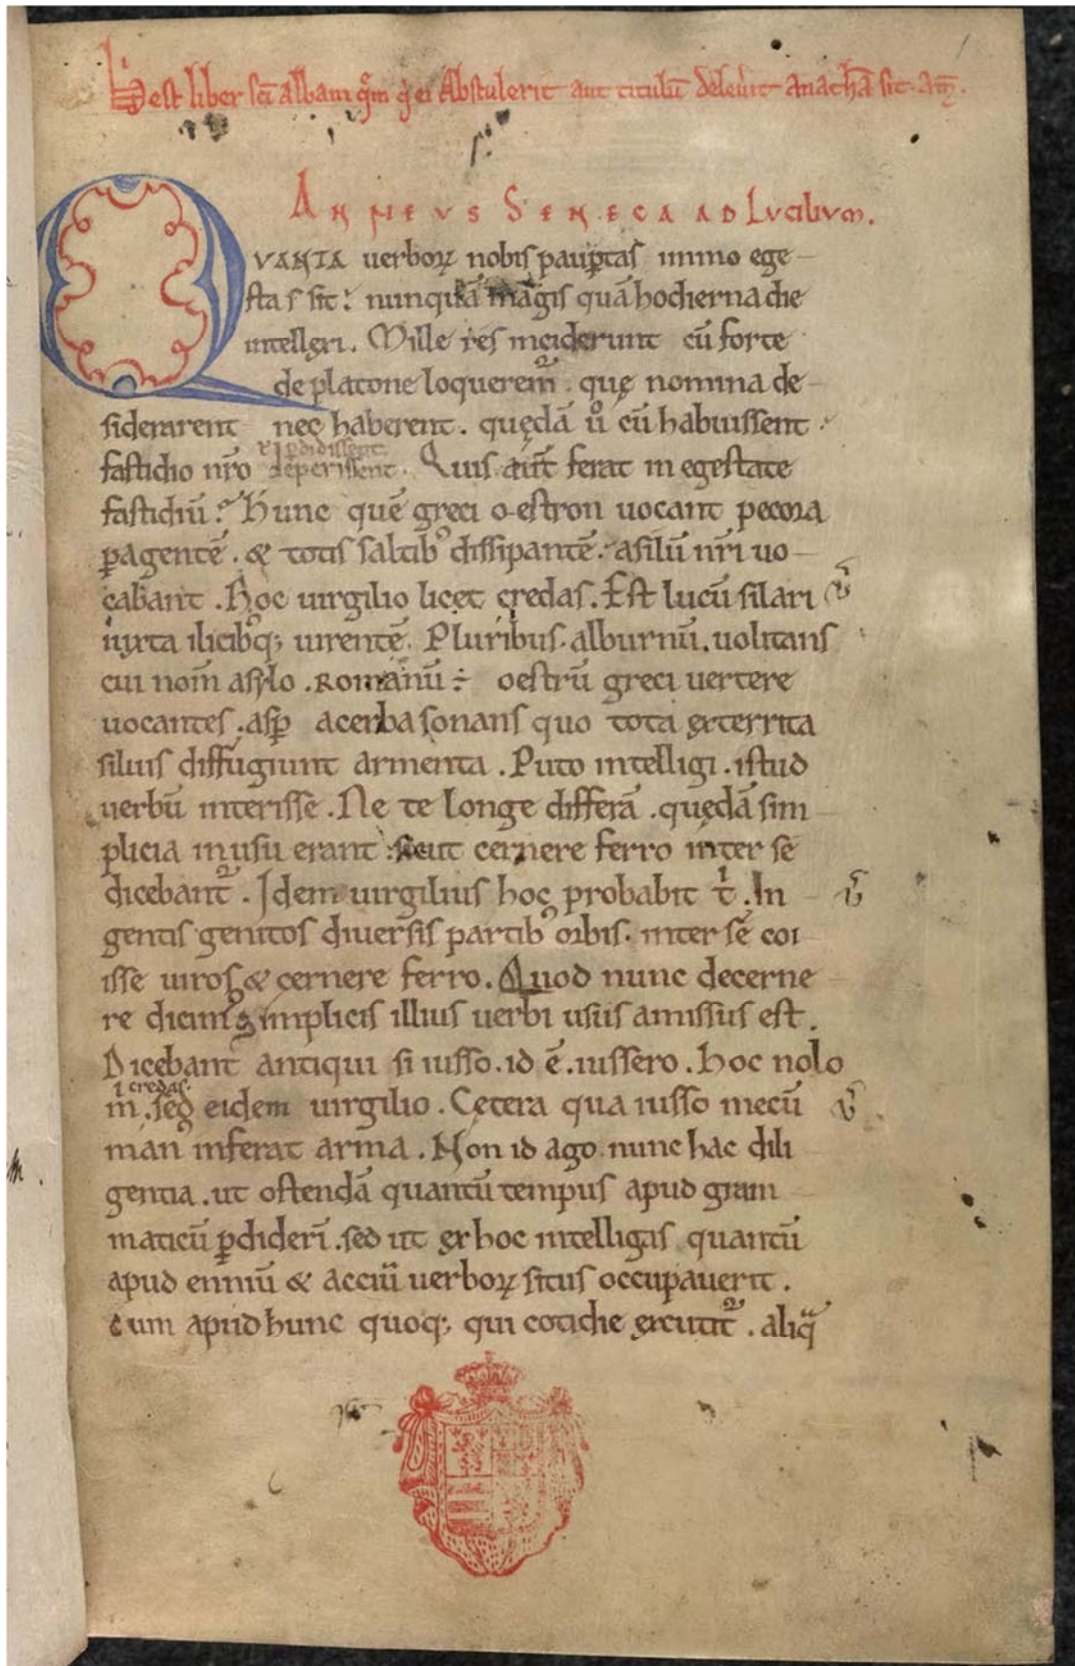 hic est liber sc̄i albani q̄m q̇ ei Abstulerit aut titulū deleu̾it anathā sit. am̄.
ANNEUS SENECA AD LUCILIUM.
QVANTA uerboꝝ nobis paup̱tas immo ege
stas sit: nunquā magis quā hodierna die
intellexi. Mille res inciderunt cū forte
de platone loquerem̄. quę nomina de
siderarent nec haberent. quędā u̾o cū habuissent
ꝑdidissent
fastidio nr̄o deperissent. Quis aūt ferat in egestate
fastidiū? Hunc quē greci oestron uocant pecora
ꝑagentē. & totis saltibꝰ dissipantē. asilū nr̄i uo
cabant. Hoc uirgilio licet credas. Est lucū silari
iuxta ilicibꝰq; uirentē. Pluribus. alburnū. uolitans
cui nom̄ asylo. Romanū ÷ oestrū greci uertere
uocantes. asꝑ acerba sonans quo tota exterrita
siluis diffugiunt armenta. Puto intelligi. istud
uerbū interisse. Ne te longe differā. quędā sim
plicia in usu erant sicut cernere ferro inter se
dicebant᷑. Idem uirgilius hoc probabit t̄. In
gentis genitos diuersis partibꝰ orbis. inter sē coi
isse uiros & cernere ferro. Quod nunc decerne
re dicimꝰ simplicis illius uerbi usus amissus est.
Dicebant antiqui si iusso. id ē. iussero. hoc nolo
credas.
m̄. sed eidem uirgilio. Cętera qua iusso mecū
manꝰ inferat arma. Non id ago nunc hac dili
gentia. ut ostendā quantū tempus apud gram
maticū ꝑdiderī. sed ut ex hoc intelligas quantū
apud enniū & acciū uerboꝝ situs occupauerit.
cum apud hunc quoq; qui cotidie excutit᷑. aliq̄